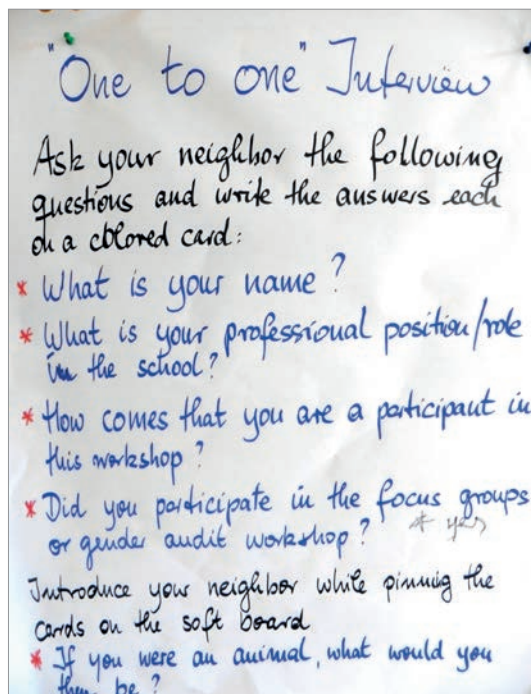 "One to one" Interview
Ask your neighbor the following
questions and write the answers each
on a colored card:
* What is your name?
* What is your professional position/role
in the school?
* How comes that you are a participant in
this workshop?
* Did you participate in the focus groups
or gender audit workshop? * yes
Introduce your neighbor while pinning the
cards on the soft board
* If you were an animal, what would you
then be?